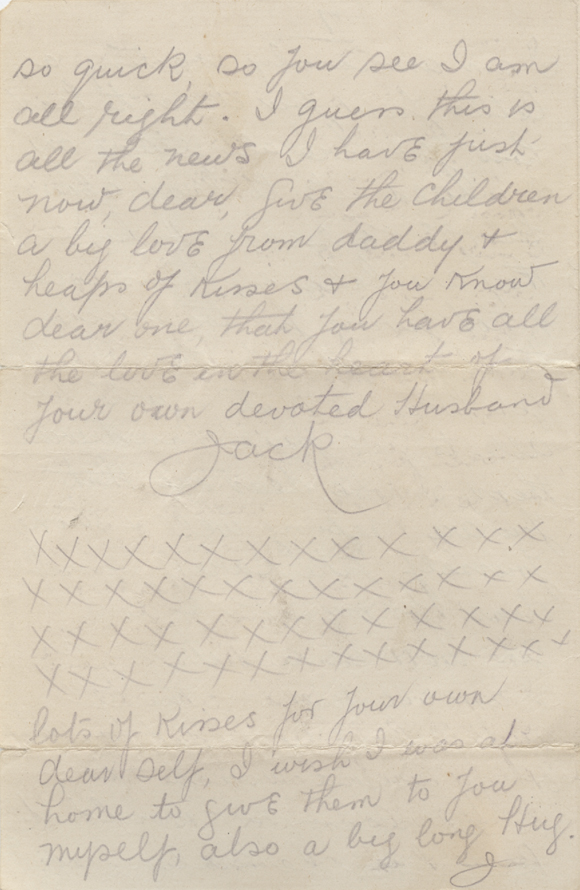 so quick, so you see I am
all right. I guess this is
all the news I have just
now, dear, give the children
a big love from daddy +
heaps of kisses + you know
dear one, that you have all
the love in the heart of
your own devoted Husband
Jack
X X X X X X X X X X X X X X
X X X X X X X X X X X X X X
X X X X X X X X X X X X X X
X X X X X X X X X X X X X X X
lots of kisses for your own
dear self, I wish I was at
home to give them to you
myself, also a big long Hug.
J